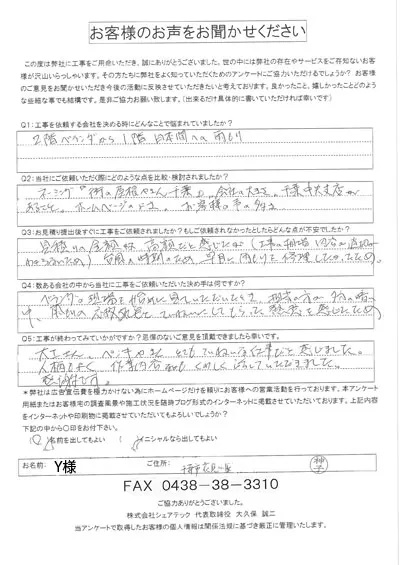 お客様のお声をお聞かせください
この度は弊社に工事をご用命いただき、誠にありがとうございました。世の中には弊社の存在やサービスをご存知ないお客様が沢山いらっしゃいます。その方たちに弊社をよく知っていただくためのアンケートにご協力いただけるでしょうか?お客様のご意見をお聞かせいただき今後の活動に反映させていただきたいと考えております。良かったこと、嬉しかったことどのような些細な事でも結構です。是非ご協力お願い致します。(出来るだけ具体的に書いていただければ幸いです)
Q1:工事を依頼する会社を決める時にどんなことで悩まれていましたか?
2階ベランダから1階日本間への雨もり
Q2:当社にご依頼いただく際にどのような点を比較・検討されましたか?
ネーミング「街の屋根やさん千葉」、会社の大きさ、千葉中央支店が
あること。ホームページの、お客様の声の多さ
Q3:お見積り提出後すぐに工事をご依頼されましたか?もしご依頼されなかったとしたらどんな点が不安でしたか?
見積りの金額は、高額だと感じたが
台風の時期のため、早目に雨もりを修理したかったため。
Q4:数ある会社の中から当社に工事をご依頼いただいた決め手は何ですか?
ベランダの現場を始めに見ていただいたとき、担当の方が
中、ていねいにしてもらった熱意を感じたため
Q5:工事が終わってみていかがですか?忌憚のないご意見を頂戴できましたら幸いです。
大工さん、ペンキやさん、とてもていねいな仕事だと感じました。
人柄もよく、作業内容などもくわしく話していただきました。
※弊社は広告宣伝費を極力かけない為にホームページだけを頼りにお客様への営業活動を行っております。本アンケート用紙またはお客様宅の調査風景や施工状況を随時ブログ形式のインターネットに掲載させていただいております。上記内容をインターネットや印刷物に掲載させていただいてもよろしいでしょうか?
下記の中から〇印をお付下さい。
( )名前を出してもよい (〇)イニシャルなら出してもよい
お名前: Y様 ご住所: 千葉市花見川区
FAX 0438-38-3310
ご協力ありがとうございました。
株式会社シェアテック 代表取締役 大久保 誠二
当アンケートで取得したお客様の個人情報は関係法規に基づき厳正に管理いたします。